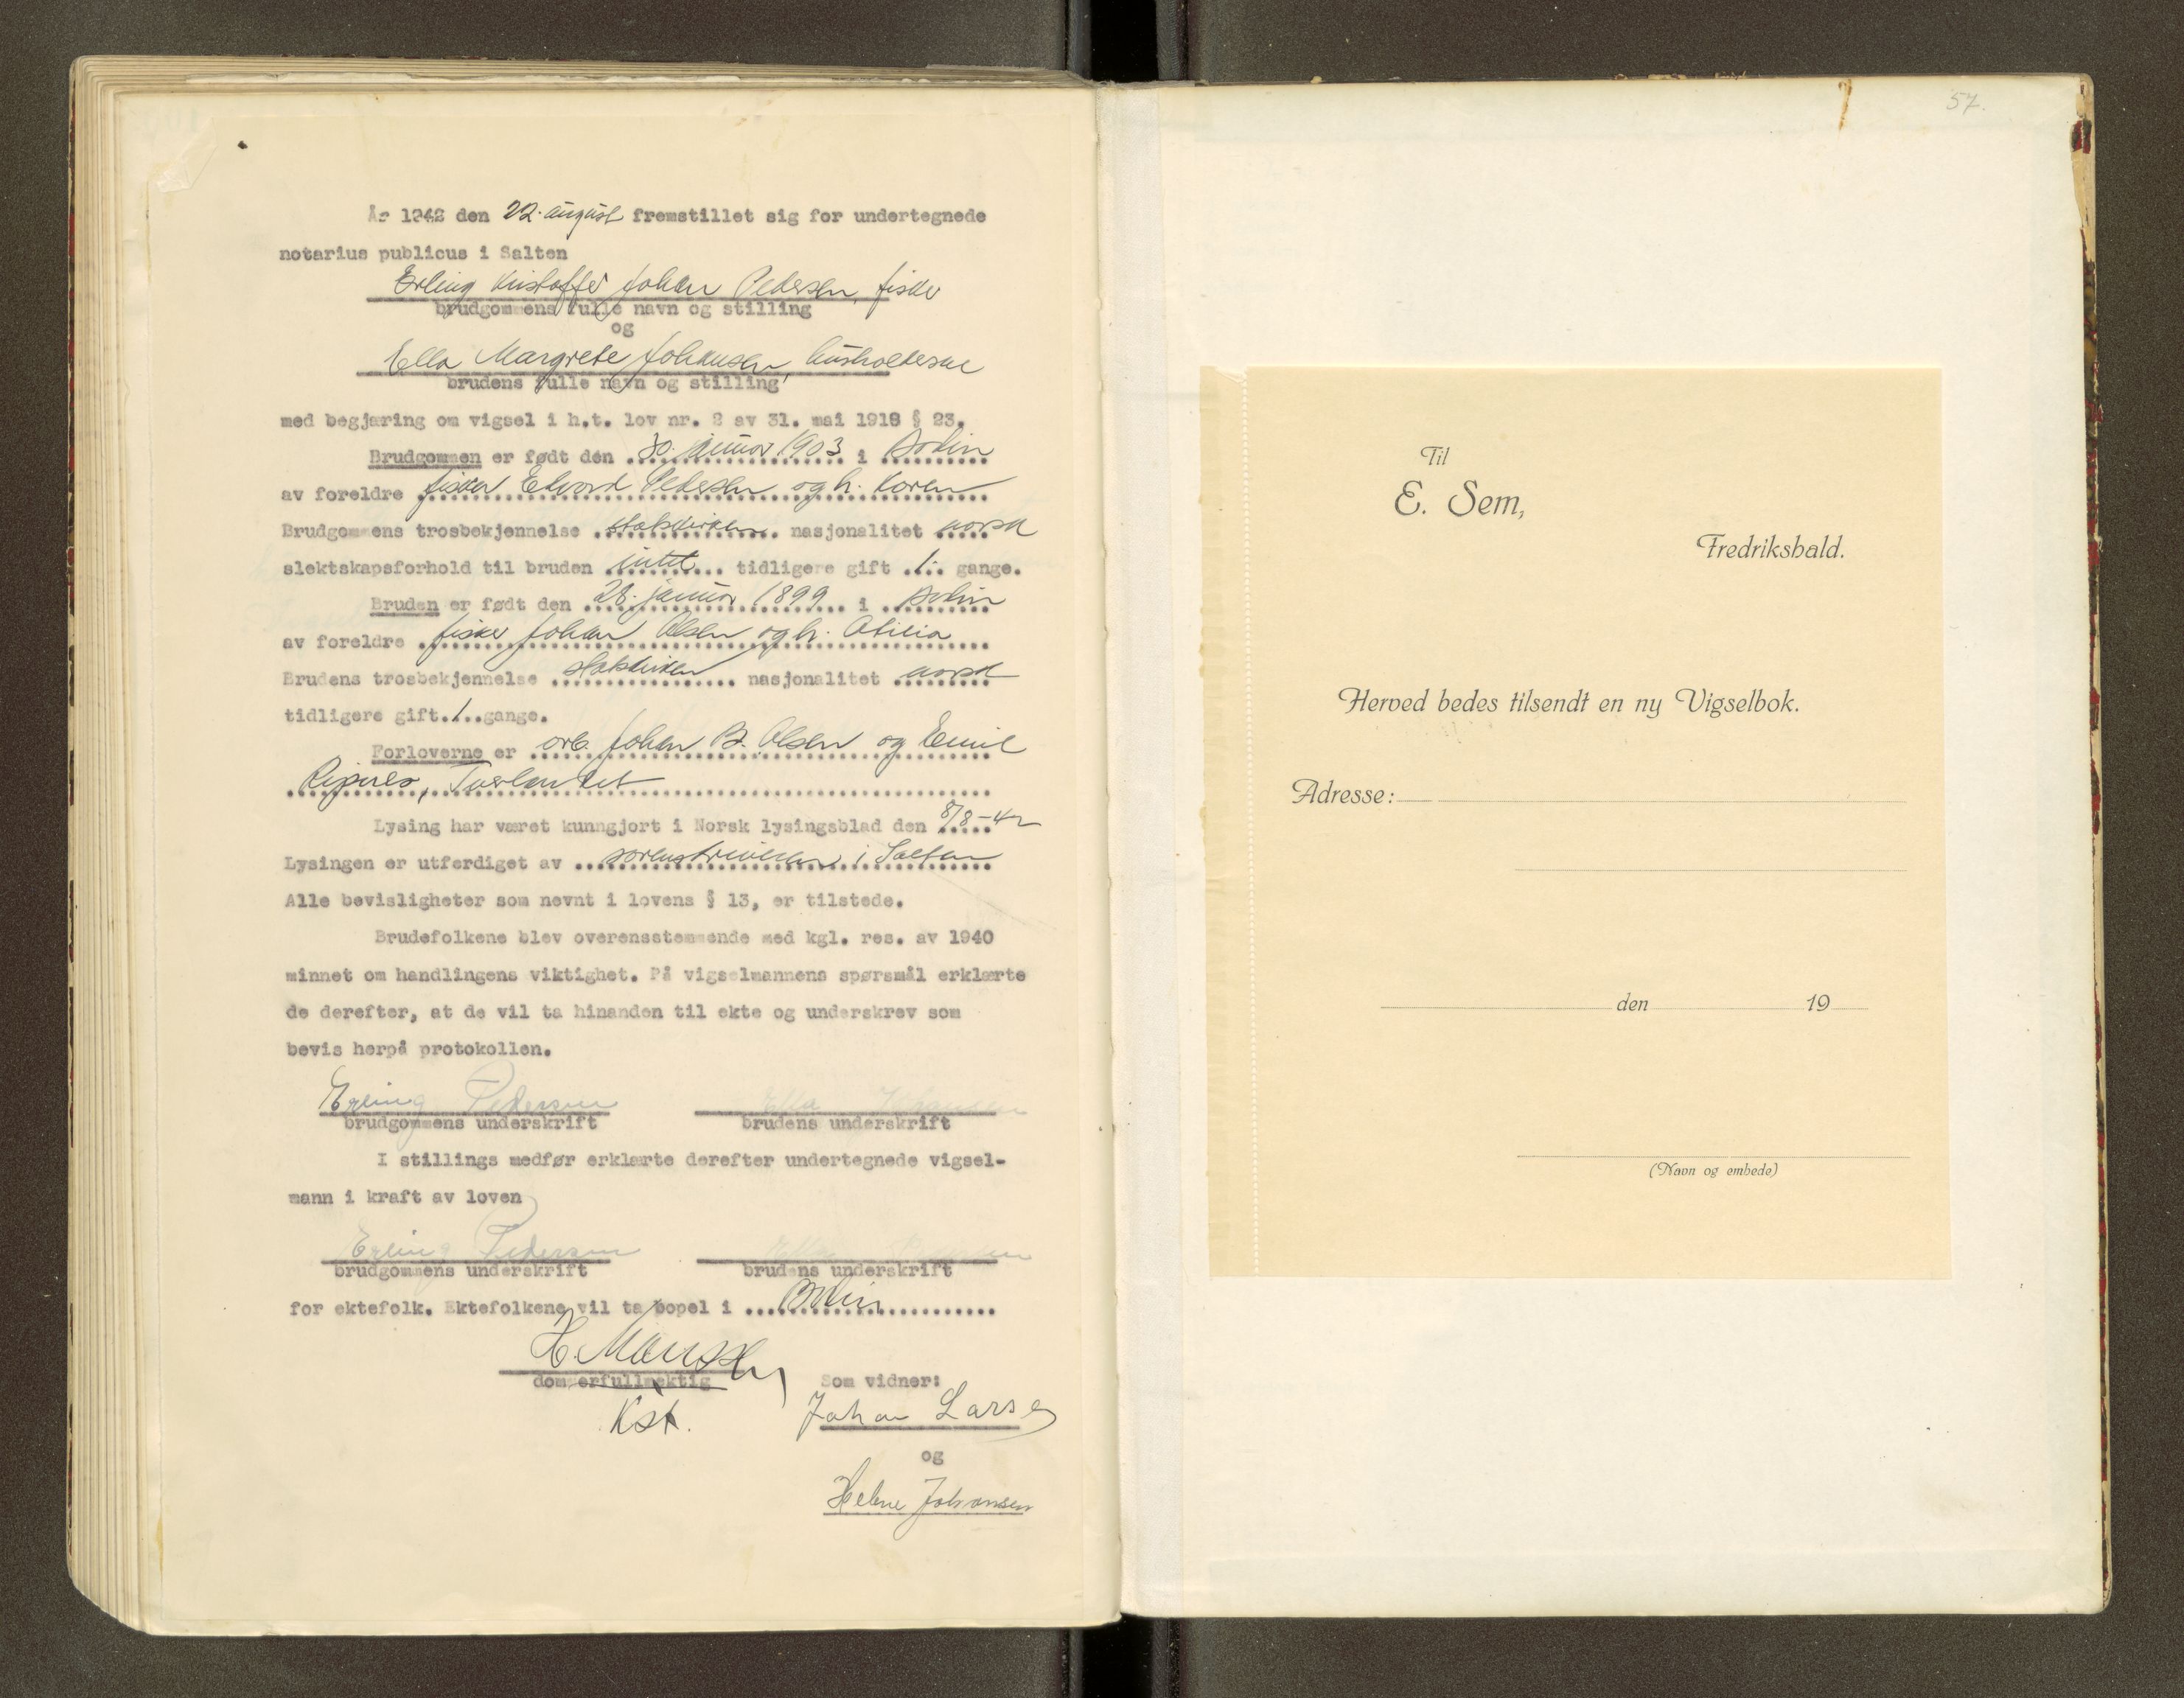 År 1942 den 22. august fremstillet sig for undertegnede
notarius publicus i Salten
Erling Kristoffer Johan Pedersen, fisker
brudgommens fulle navn og stilling
og
Ella Margrete Johansen, husholderske
brudens fulle navn og stilling
med begjæring om vigsel i h.t. lov nr. 2 av 31. mai 1918 § 23.
Brudgommen er født den 30. januar 1903 i
av foreldre fisker Edvard Pedersen og h. Karen
Brudgommens trosbekjennelse statskirken nasjonalitet norsk
slektskapsforhold til bruden intet tidligere gift 1 gange.
Bruden er født den 28. januar 1899 i
av foreldre fisker Johan Olsen og h. Otilia
Brudens trosbekjennelse statskirken nasjonalitet norsk
tidligere gift 1 gange.
Forloverne er arb. Johan B. Olsen og Emil
Lysing har været kunngjort i Norsk lysingsblad den 8/8-42
Lysingen er utferdiget av sorenskriveren i Salten
Alle bevisligheter som nevnt i lovens § 13, er tilstede.
Brudefolkene blev overensstemmende med kgl. res. av 1940
minnet om handlingens viktighet. På vigselmannens spørsmål erklærte
de derefter, at de vil ta hinanden til ekte og underskrev som
bevis herpå protokollen.
Erling Pedersen Ella Johansen
brudgommens underskrift brudens underskrift
I stillings medfør erklærte derefter undertegnede vigsel-
mann i kraft av loven
Erling Pedersen Ella Pedersen
brudgommens underskrift brudens underskrift
for ektefolk. Ektefolkene vil ta bopel i
H. Maussen
dommerfullmektig Som vidner:
Kst. Johan Larsen
og
Helene Johansen
57.
Til
E. Sem,
Fredrikshald.
Herved bedes tilsendt en ny Vigselbok.
Adresse:
den 19
(Navn og embede)